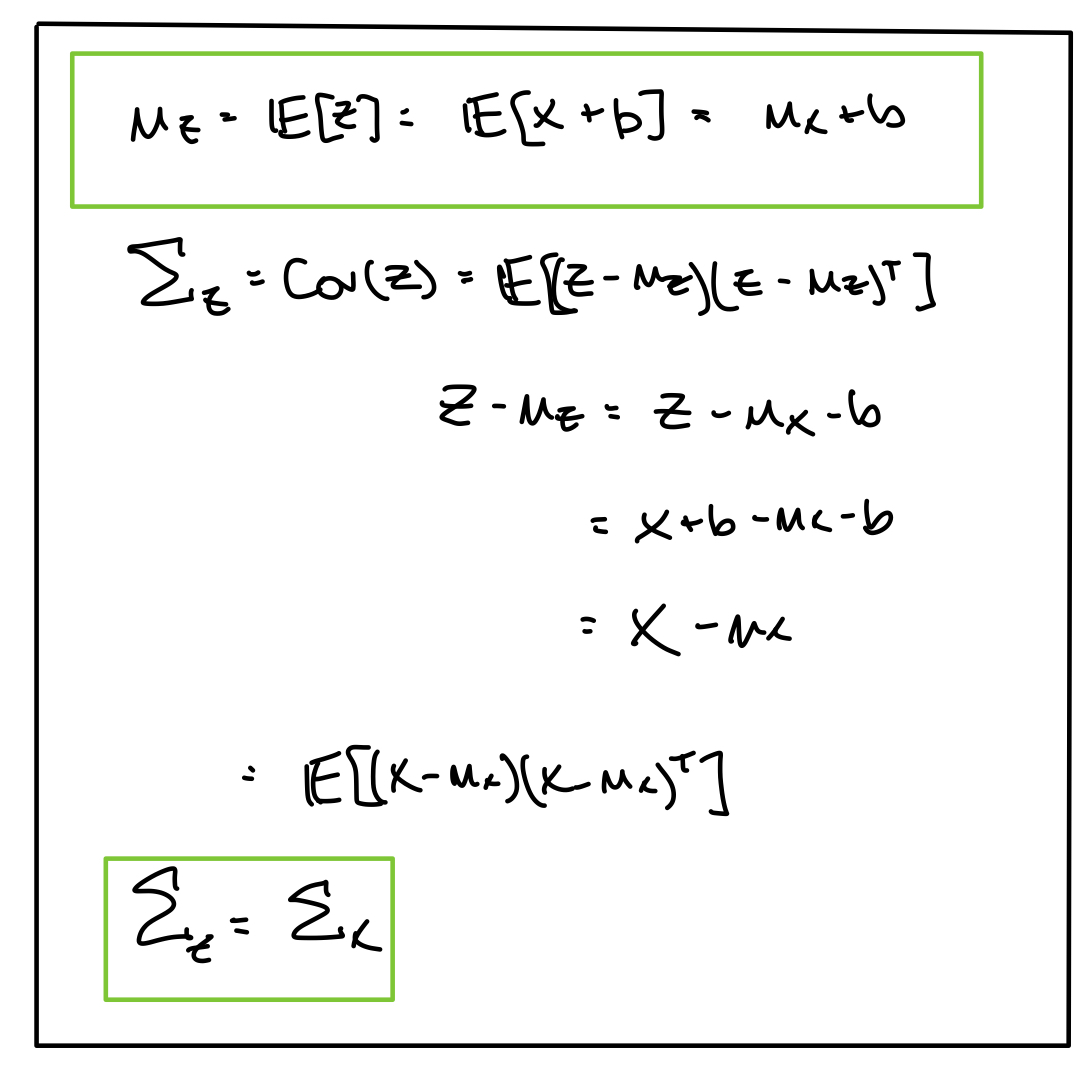 μ_z = 𝔼[z] = 𝔼[x + b] = μ_x + b
Σ_z = Cov(z) = 𝔼[(z - μ_z)(z - μ_z)^T]
z - μ_z = z - μ_x - b
= x + b - μ_x - b
= x - μ_x
= 𝔼[(x - μ_x)(x - μ_x)^T]
Σ_z = Σ_x